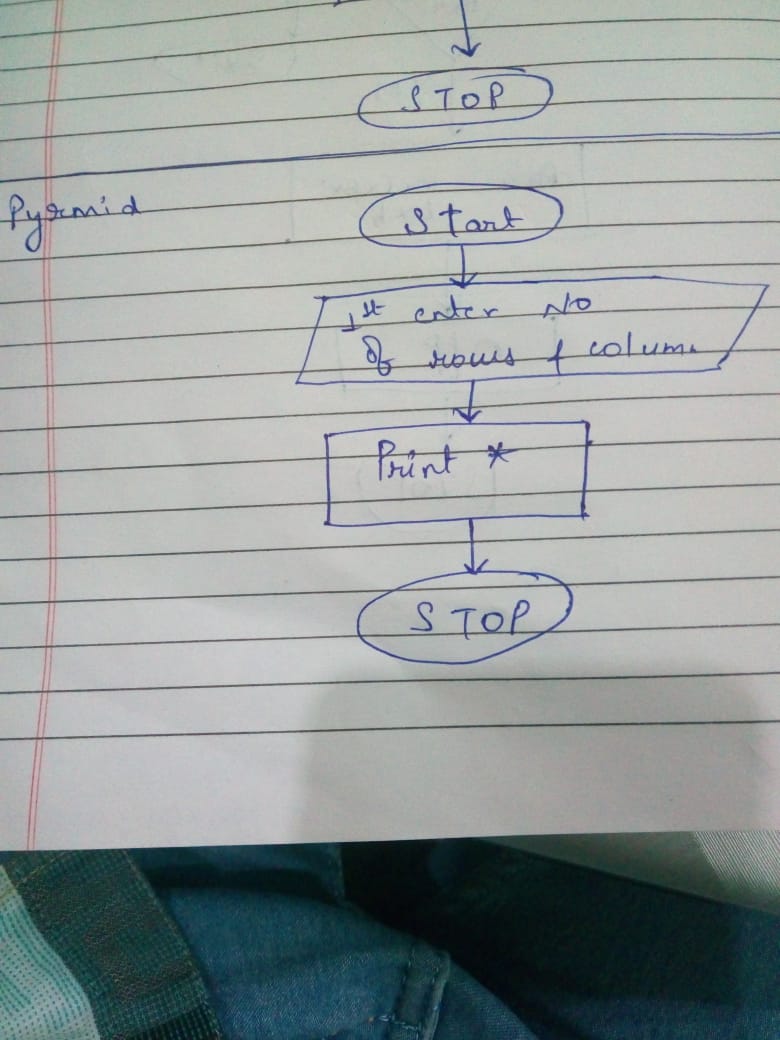 STOP
Pyrmid
Start
1st enter No
Of rows & colum
Print *
STOP